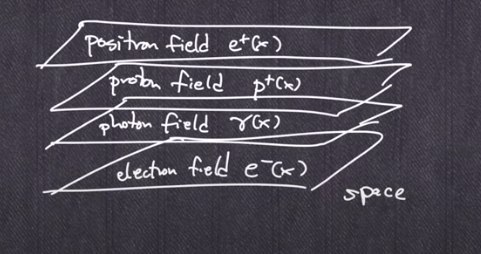 positron field e⁺(x)
proton field p⁺(x)
photon field γ(x)
electron field e⁻(x)
space